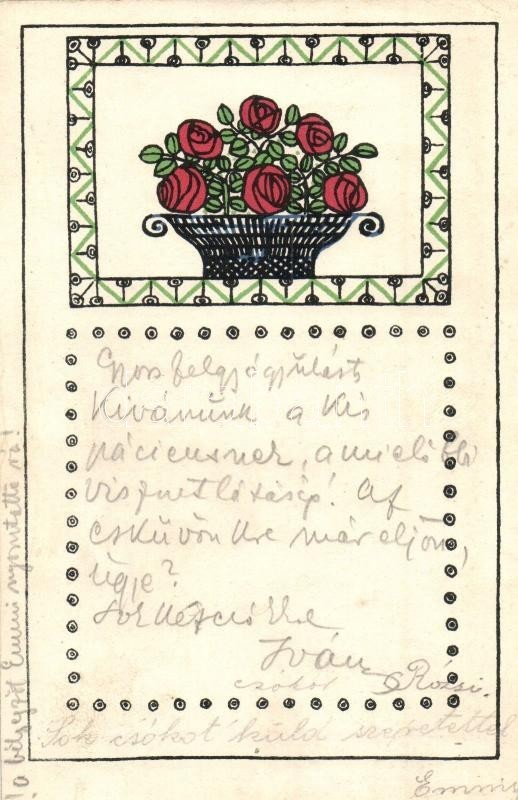 Gyors felgyógyulást
Kivánunk a kis
páciensnek, a mielőbbi
viszontlátásig! Az
esküvőnkre már eljön,
ugje?
Sok kézcsókkal
Iván
csókol Rózsi.
Sok csókot küld szeretettel
Emmy
a bélyegzőt Emmi nyomtatta rá!